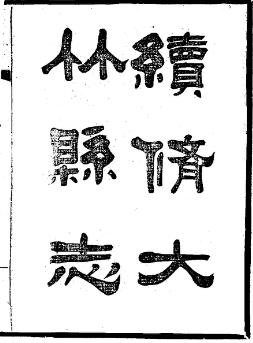 續修大
竹縣志